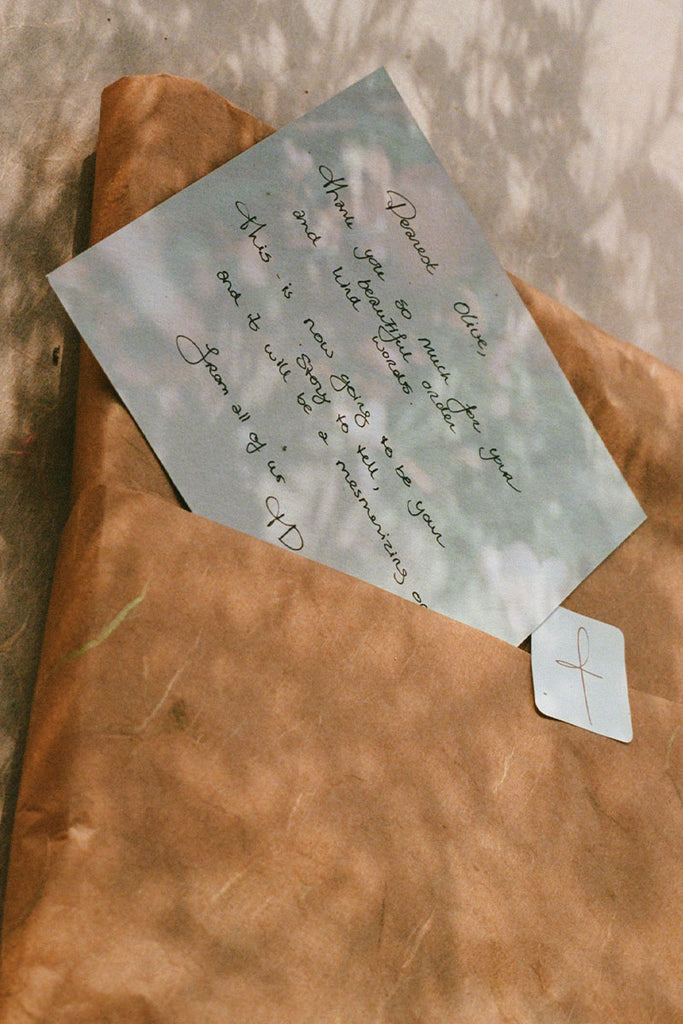 Dearest Olive,
thank you so much for your
beautiful order
and kind words.
this - is now going to be your
story to tell,
and it will be a mesmerizing
from all of us